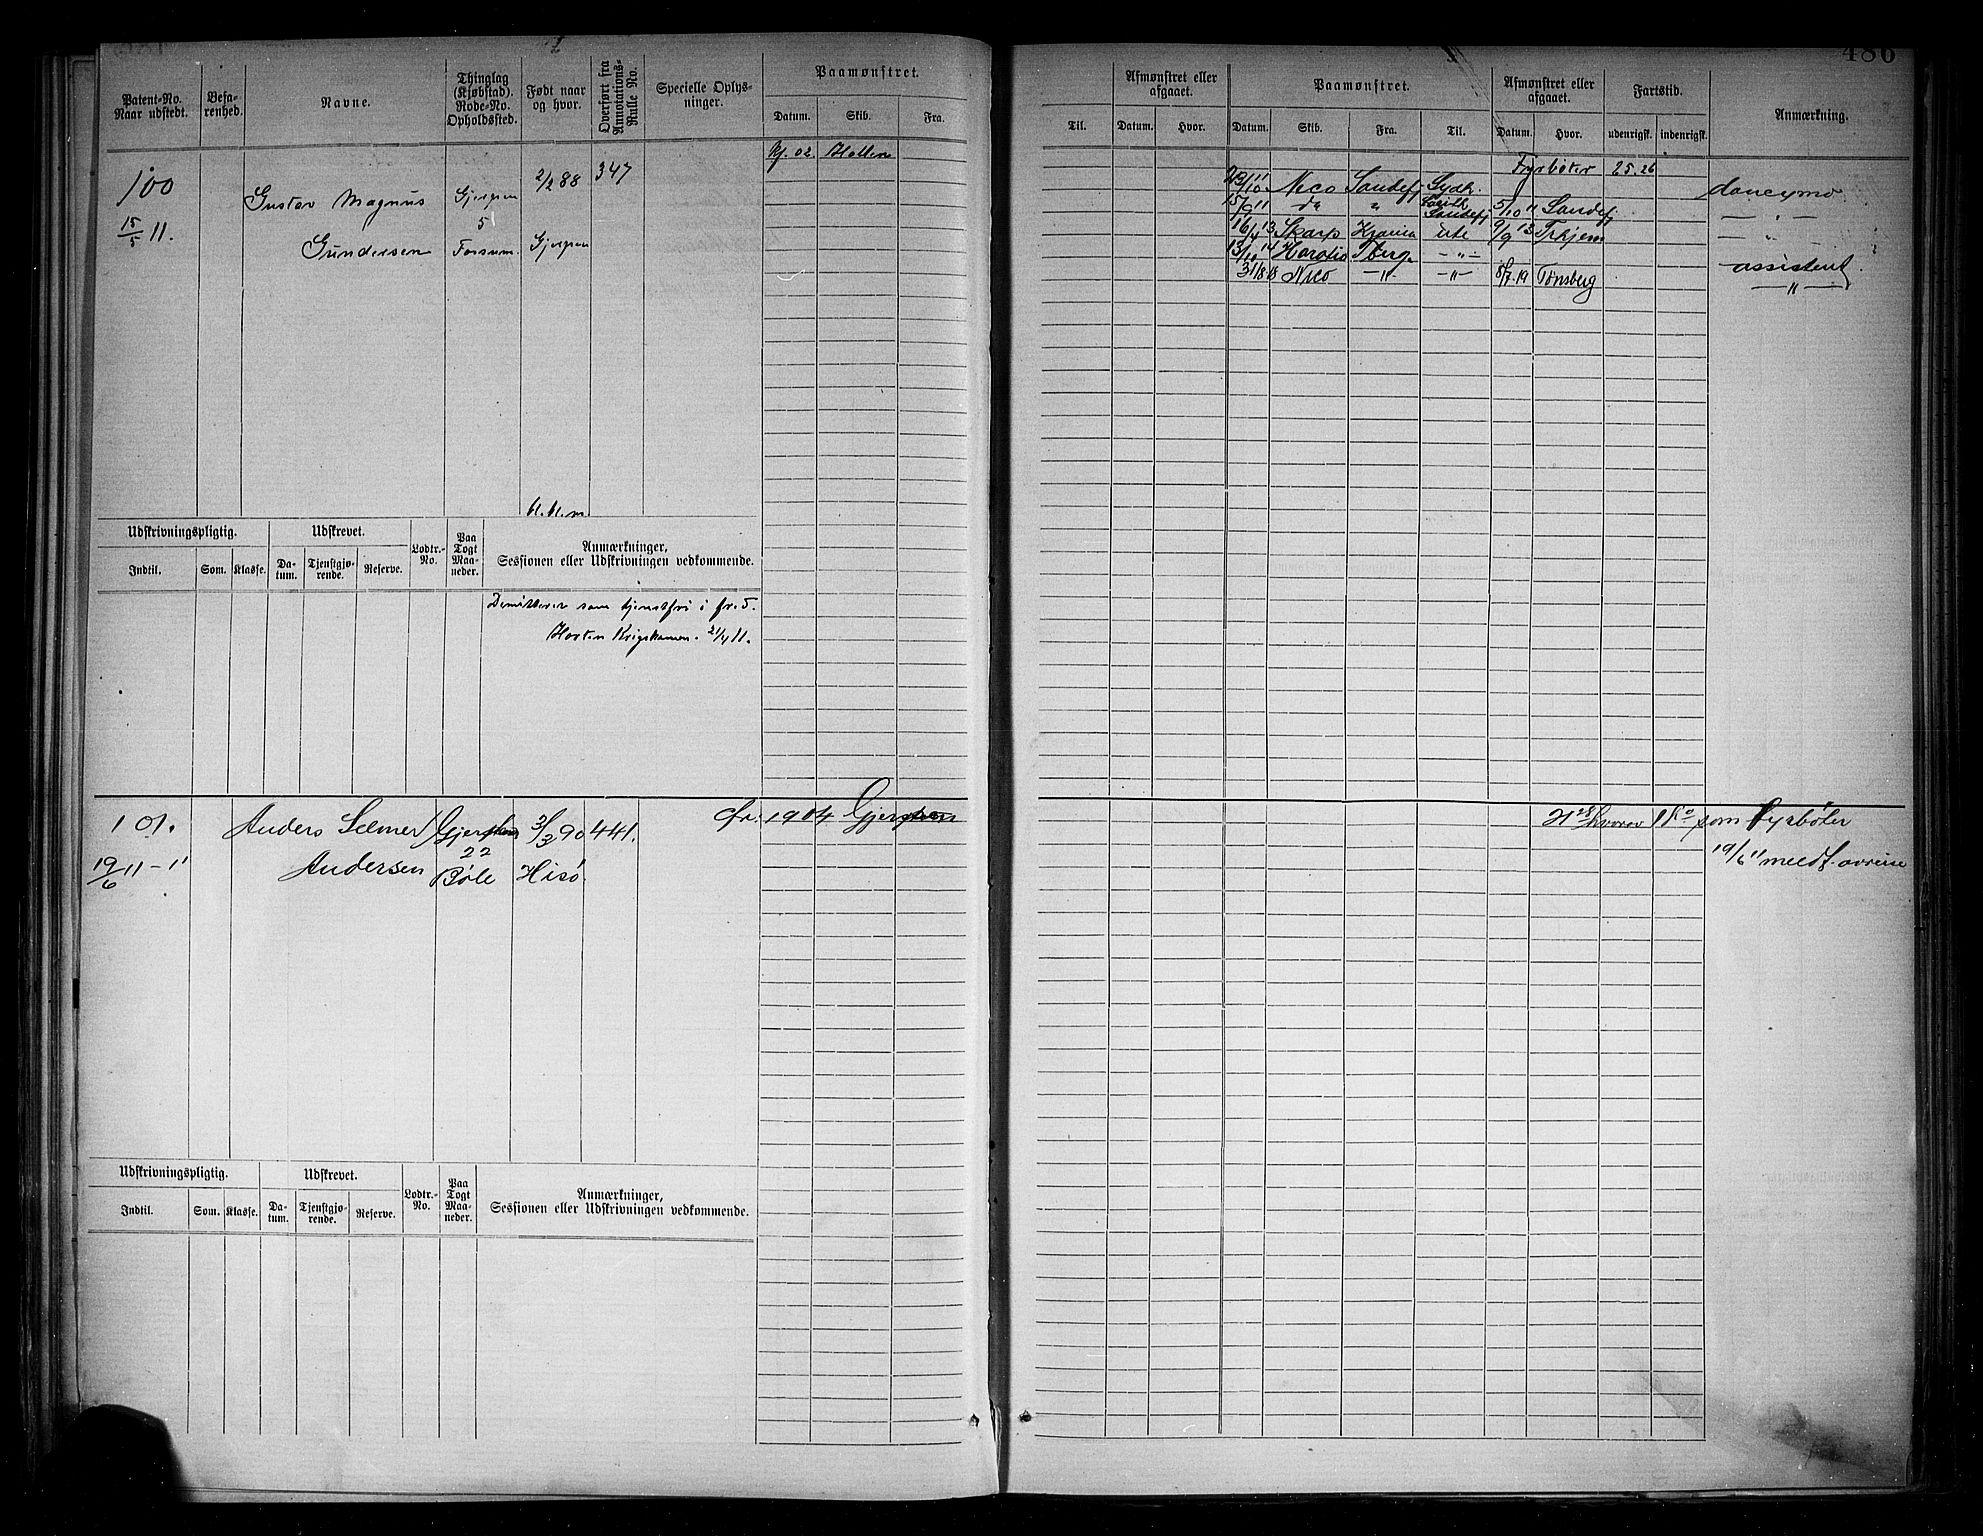 486
Patent-No. Naar udstedt.
Befarenhed.
Navne.
Thinglag (Kjøbstad). Rode-No. Opholdssted.
Født naar og hvor.
Overført fra Annotations-Rulle No.
Specielle Oplysninger.
Paamønstret.
Datum. Skib. Fra.
Til.
Afmønstret eller afgaaet.
Datum. Hvor.
Paamønstret.
Datum. Skib. Fra. Til.
Afmønstret eller afgaaet.
Datum. Hvor.
Fartstid.
udenrigsk. indenrigsk.
Anmærkning.
Kf. 02. Hollen
Fyrbøter 25.26
100 2/2 88 347
Gustav Magnus Gjerpen
15/5 11. 5
Gundersen Fossum. Gjerpen
Nico Sandefj Sydh. donkeym
15/9 11 do " Sandefj 5/10 11 Sandefj — " —
16/4 13 Skarp Kragerø ute 9/9 13 — " —
13/10 14 Horatio Tberg — " — assistent
31/8 18 Nico — " — — " — 8/7.19 Tønsberg — " —
bl. bl. m.
Udskrivningspligtig. Udskrevet. Lodtr.-No. Paa Togt Maaneder. Anmærkninger, Sessionen eller Udskrivningen vedkommende.
Indtil. Som. Klasse. Datum. Tjenstgjørende. Reserve.
Demitteres som tjenstfri i fr. 5.
Horten Krigskommn. 21/4 11.
101. Anders Selmer Gjerpen 3/3 90 441. Fr. 1904 Gjerpen
22
19/6 11 - 11 Andersen Bøle Hisø.
som Fyrbøter
19/6 11 meldt avreise
Udskrivningspligtig. Udskrevet. Lodtr.-No. Paa Togt Maaneder. Anmærkninger, Sessionen eller Udskrivningen vedkommende.
Indtil. Som. Klasse. Datum. Tjenstgjørende. Reserve.